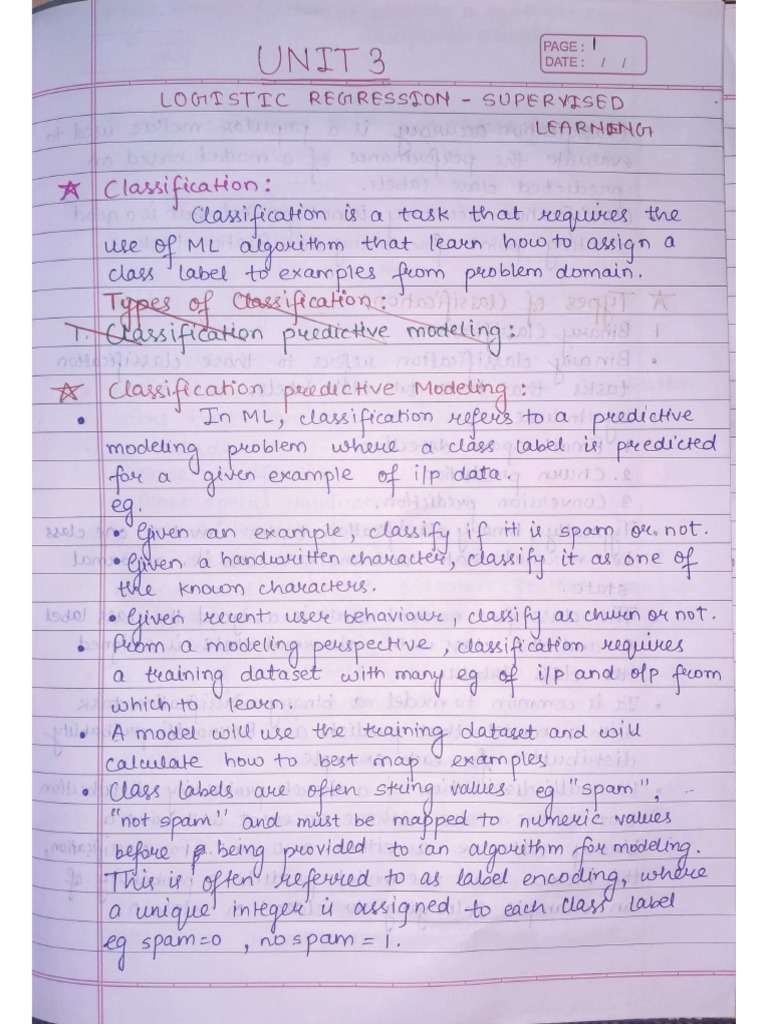 UNIT 3
PAGE: 1
DATE: / /
LOGISTIC REGRESSION - SUPERVISED
LEARNING
☆ Classification:
Classification is a task that requires the
use of ML algorithm that learn how to assign a
class label to examples from problem domain.
Types of Classification:
1. Classification predictive modeling:
☆ Classification predictive Modeling:
• In ML, classification refers to a predictive
modeling problem where a class label is predicted
for a given example of i/p data.
eg.
• Given an example, classify if it is spam or not.
• Given a handwritten character, classify it as one of
the known characters.
• Given recent user behaviour, classify as churn or not.
• From a modeling perspective, classification requires
a training dataset with many eg of i/p and o/p from
which to learn.
• A model will use the training dataset and will
calculate how to best map examples
• Class labels are often string values eg "spam",
"not spam" and must be mapped to numeric values
before being provided to an algorithm for modeling.
This is often referred to as label encoding, where
a unique integer is assigned to each class label
eg spam=0 , no spam = 1.